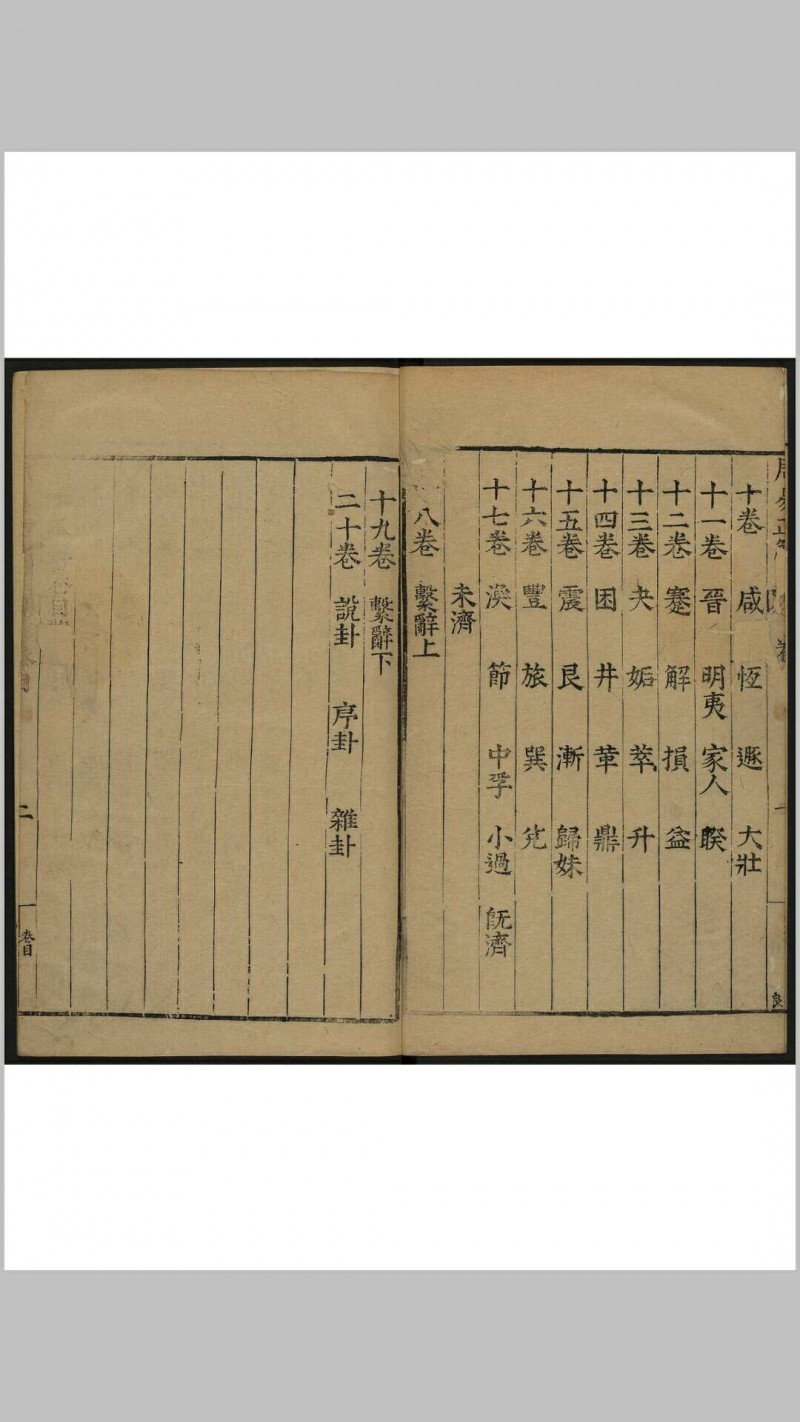 十卷 咸 恆 遯 大壯
十一卷 晉 明夷 家人 睽
十二卷 蹇 解 損 益
十三卷 夬 姤 萃 升
十四卷 困 井 革 鼎
十五卷 震 艮 漸 歸妹
十六卷 豐 旅 巽 兌
十七卷 渙 節 中孚 小過 旣濟
未濟
八卷 繫辭上
十九卷 繫辭下
二十卷 說卦 序卦 雜卦
二 卷目